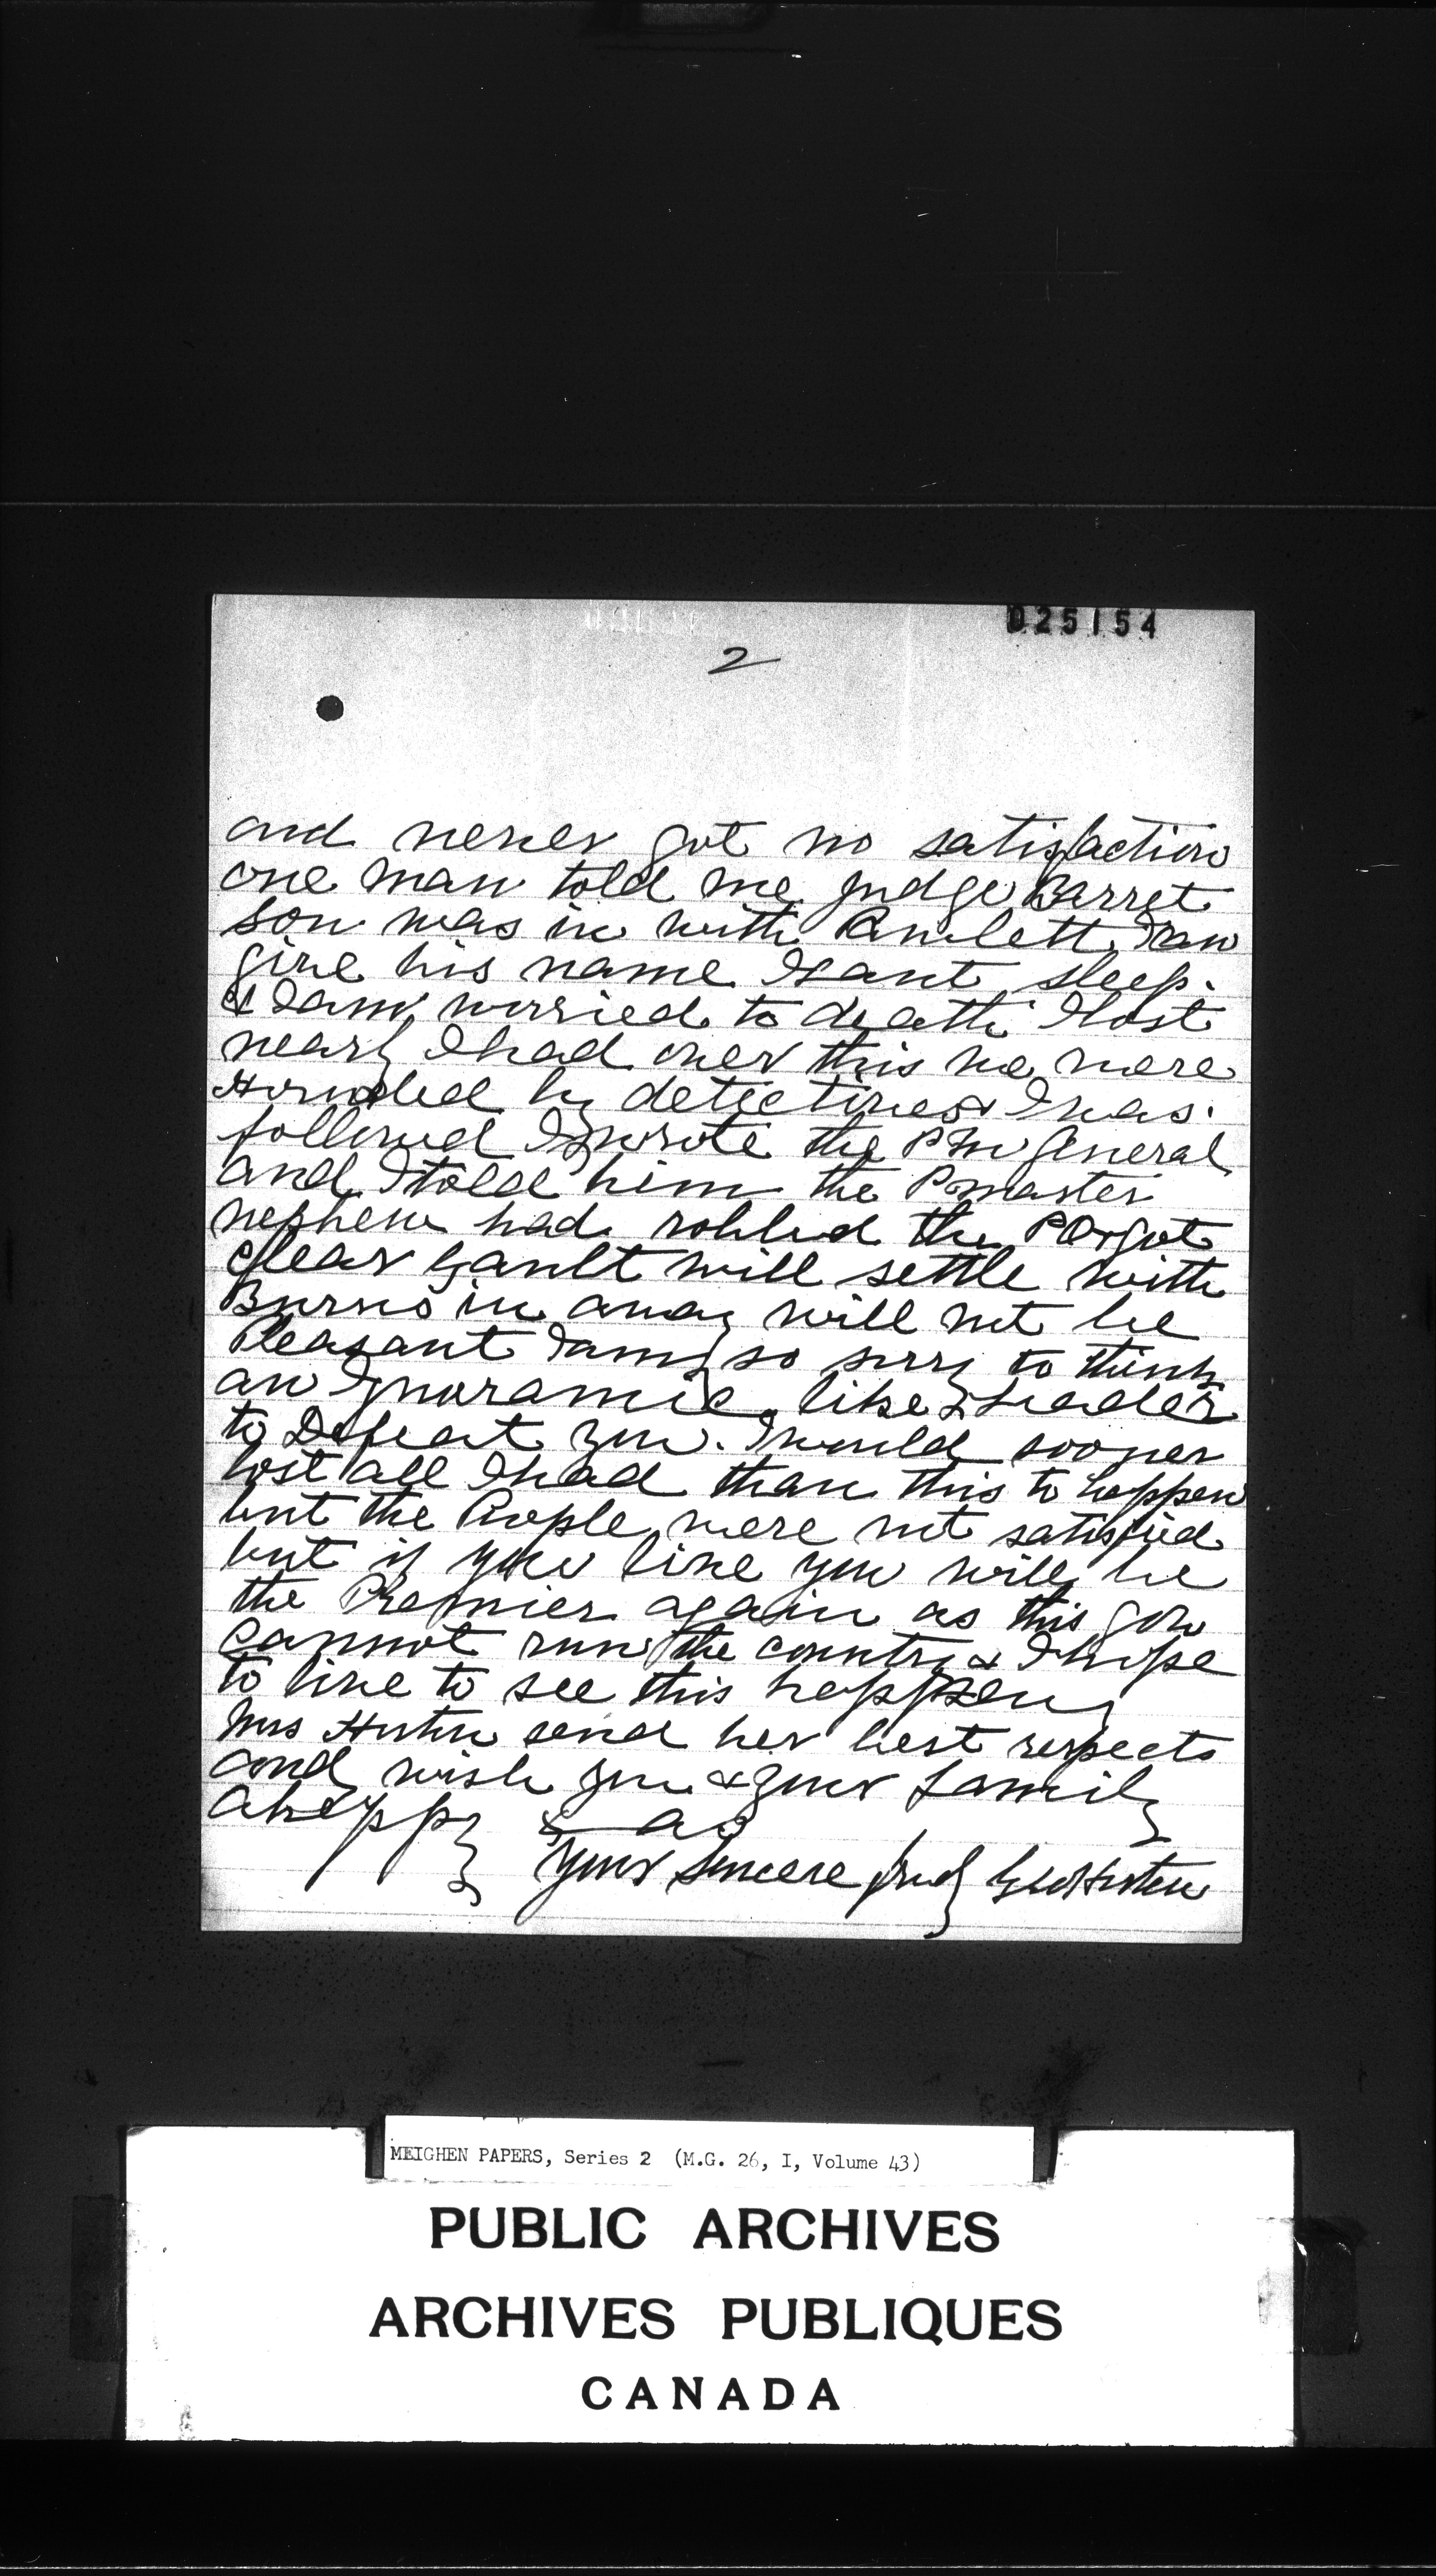 D25154
2
and never got no satisfaction
one man told me Judge Barret
son was in with I can
give his name I cant sleep.
& I am worried to death I lost
nearly I had over this we were
Hounded by detectives & I was.
followed I wrote the P M General
and I told him the P master
nephew had robbed the P O & got
clear Gault will settle with
Burns in away will not be
Pleasant I am so sorry to think
an like Leader
to Defeat you. I would sooner
lost all I had than this to happen
but the People were not satisfied
but if you live you will be
the Premier again as this gov
cannot run the country & I hope
to live to see this happen
Mrs Huston send her best respects
and wish you & your Family
a happy
Your Sincere frud Geo Huston
MEIGHEN PAPERS, Series 2 (M.G. 26, I, Volume 43)
PUBLIC ARCHIVES
ARCHIVES PUBLIQUES
CANADA